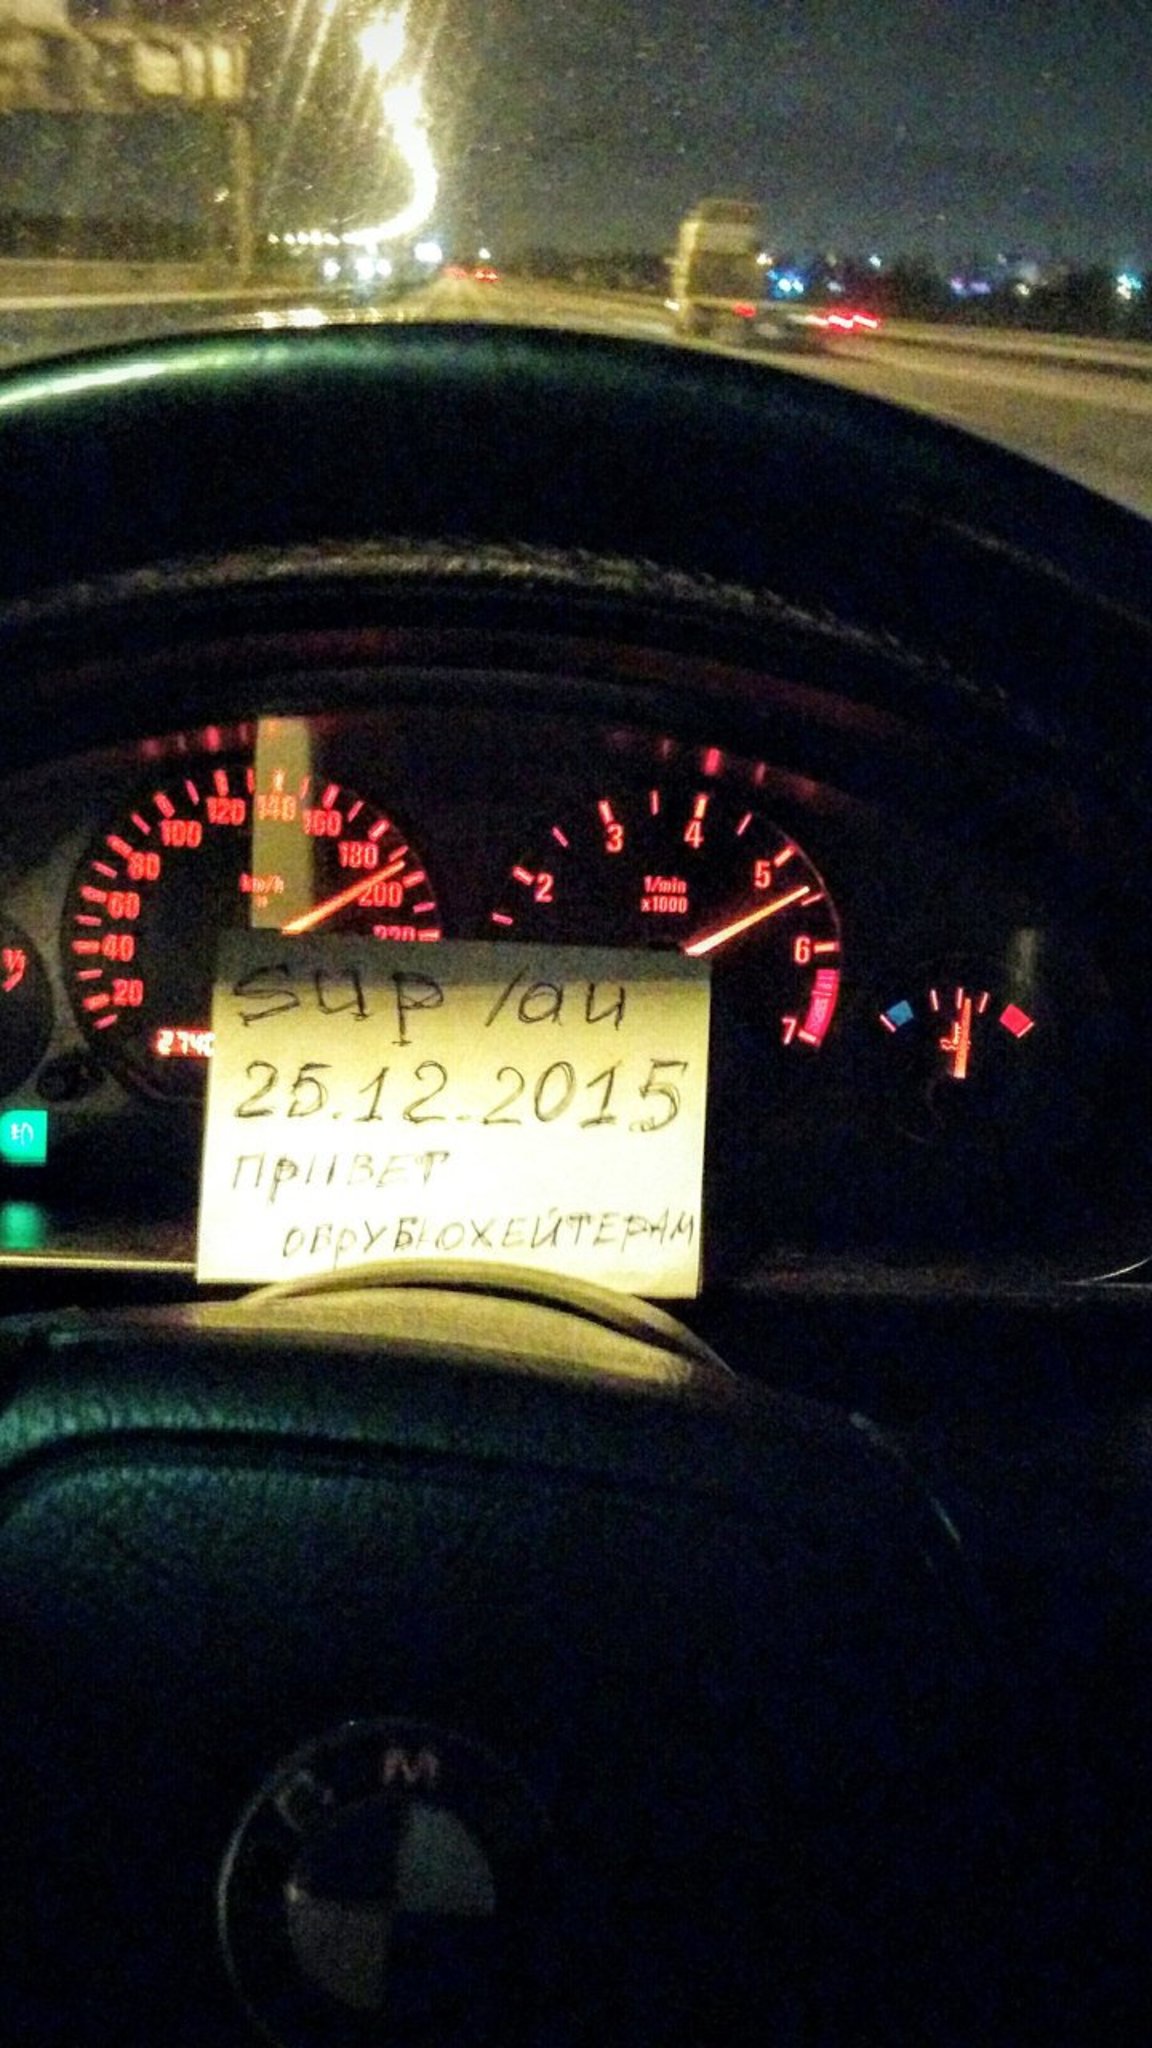 20
40
60
80
100
120
140
160
180
200
220
km/h
2740
2
3
4
5
6
7
1/min
x1000
sup /au
25.12.2015
ПРИВЕТ
ОБРУБКОХЕЙТЕРАМ
M